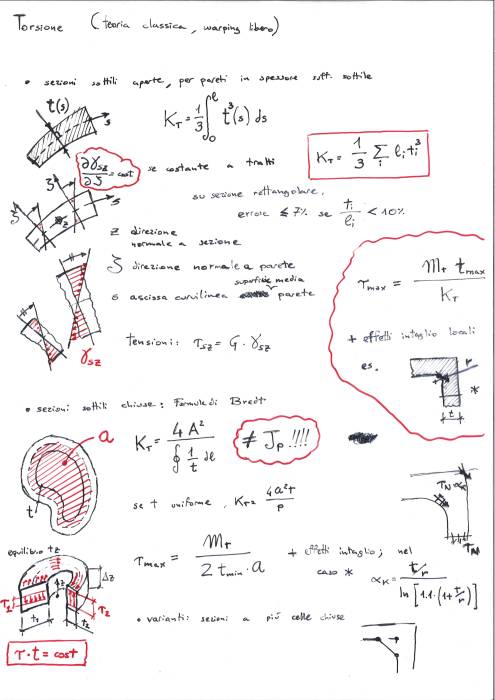 Torsione (teoria classica, warping libero)
• sezioni sottili aperte, per pareti in spessore suff. sottile
t(s)
s
K_T = 1/3 ∫_0^l t³(s) ds
∂γ_sz/∂ζ = cost
se costante a tratti
K_T = 1/3 Σ_i l_i t_i³
su sezione rettangolare,
errore ≤ 7% se t_i/l_i < 10%
ζ
s
z
z direzione
normale a sezione
ζ direzione normale a parete
superficie media
s ascissa curvilinea parete
γ_sz
tensioni: τ_sz = G · γ_sz
τ_max = M_T t_max / K_T
+ effetti intaglio locali
es.
r
*
t
• sezioni sottili chiuse: Formule di Bredt
a
t
K_T = 4A² / ∮ 1/t dl
≠ J_p !!!!
se t uniforme, K_T = 4a²t/p
equilibrio tz
Δz
τ_2
t_1
t_2
τ_2
τ · t = cost
τ_max = M_T / 2 t_min · a
+ effetti intaglio; nel
caso *
α_K = t/r / ln[1.1·(1+t/r)]
τ_N α_K
τ_N
• varianti: sezioni a più celle chiuse